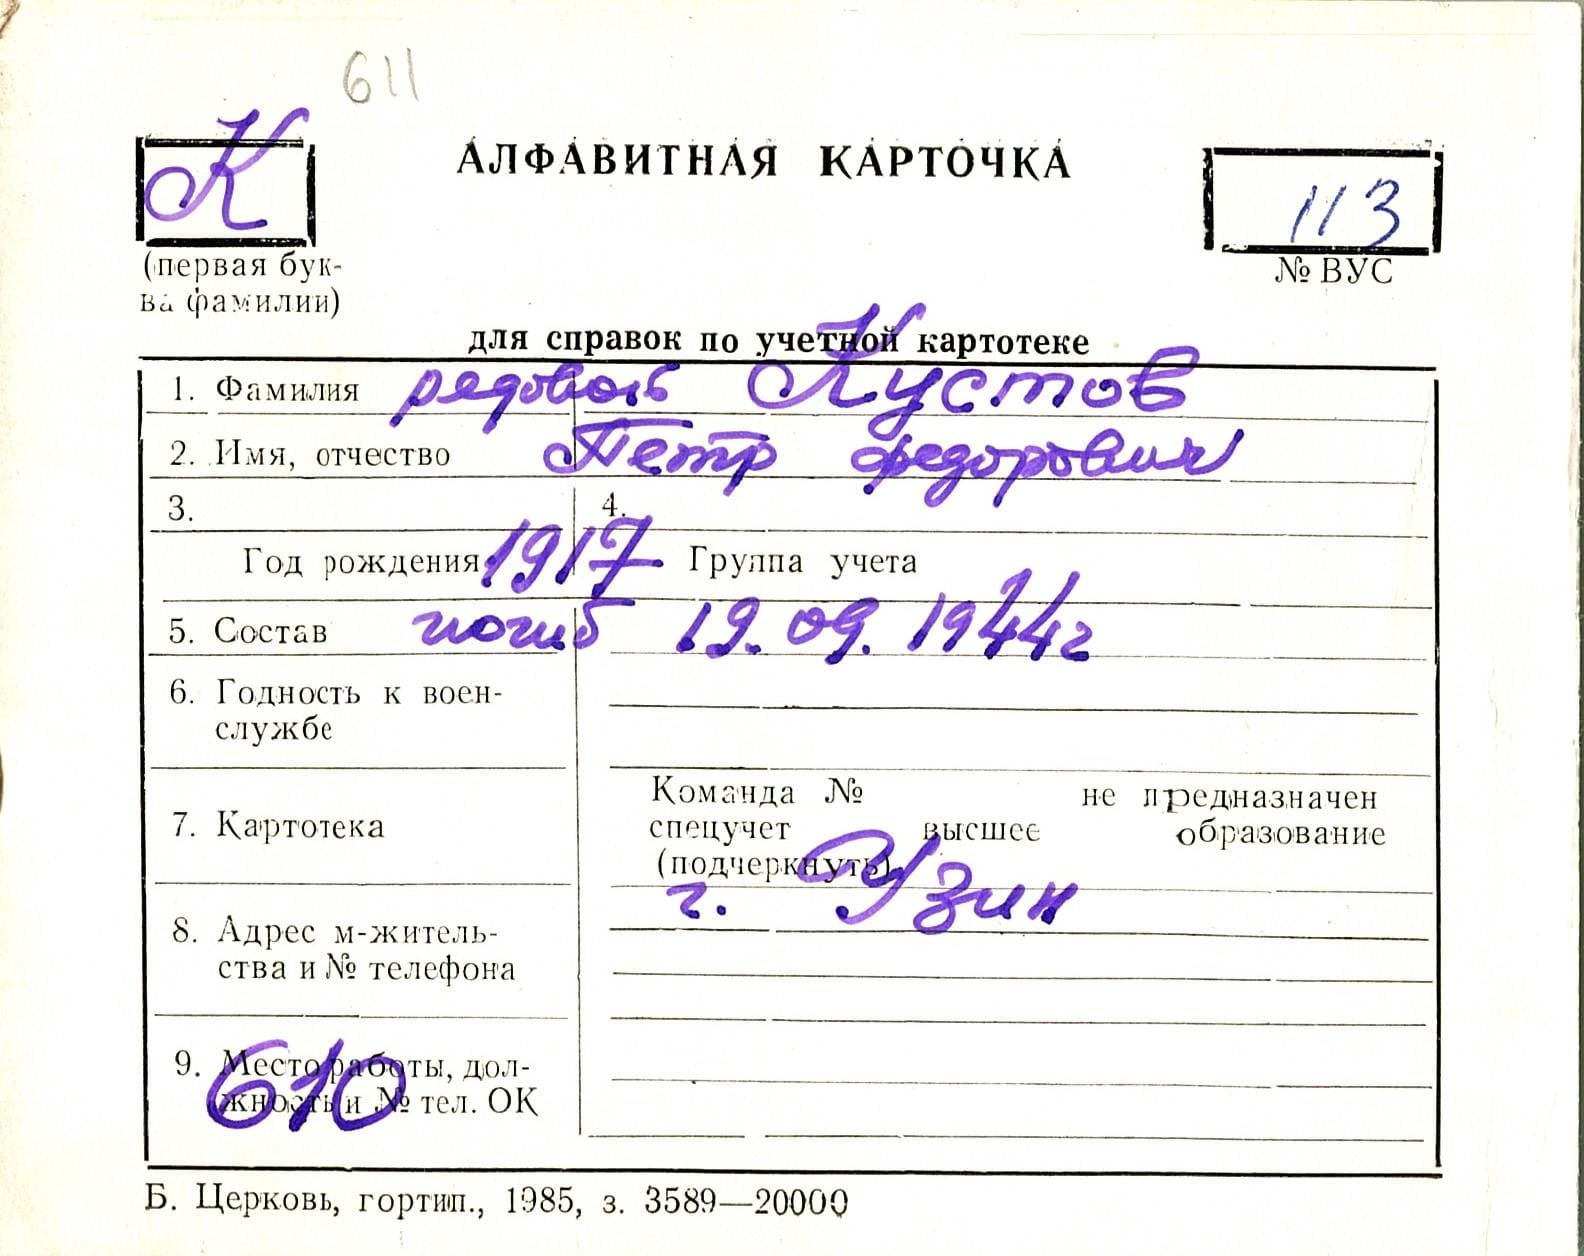 611
К
АЛФАВИТНАЯ КАРТОЧКА
113
(первая бук-
ва фамилии)
№ ВУС
для справок по учетной картотеке
1. Фамилия рядовой Кустов
2. Имя, отчество Петр Федорович
3. 4.
Год рождения 1917 Группа учета
5. Состав погиб 19.09.1944г
6. Годность к воен-
службе
Команда № не предназначен
7. Картотека
спецучет высшее образование
(подчеркнуть)
г. Узин
8. Адрес м-житель-
ства и № телефона
9. Место работы, дол-
жность и № тел. ОК
610
Б. Церковь, гортип., 1985, з. 3589—20000